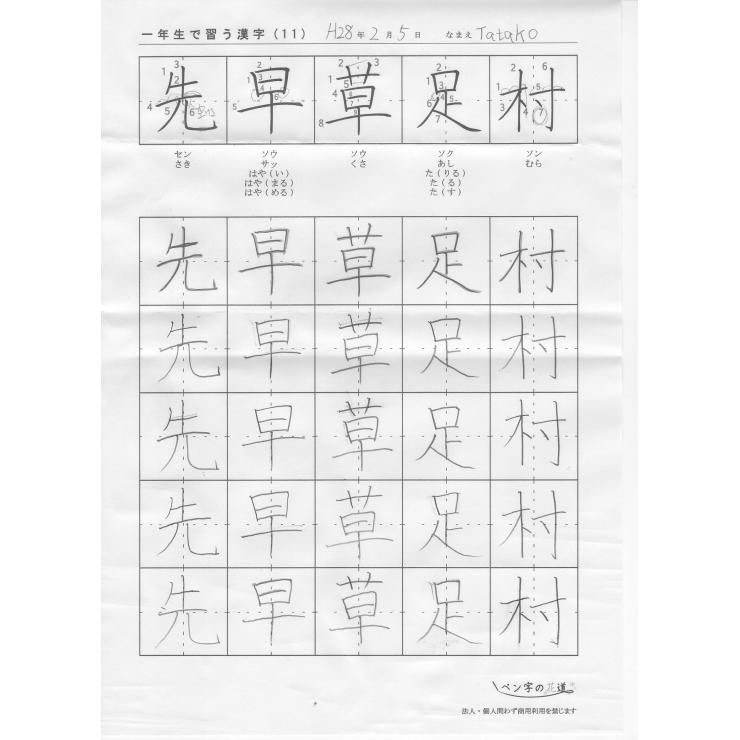 一年生で習う漢字(11) H28年2月5日 なまえ Tatako
先 早 草 足 村
セン ソウ ソウ ソク ソン
さき サッ くさ あし むら
はや(い) た(りる)
はや(まる) た(る)
はや(める) た(す)
先 早 草 足 村
先 早 草 足 村
先 早 草 足 村
先 早 草 足 村
先 早 草 足 村
ペン字の花道
法人・個人問わず商用利用を禁じます